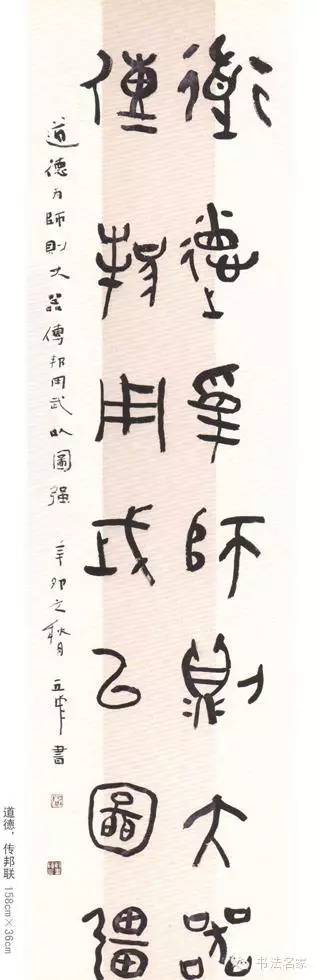 道德为師則大器
傳邦用武以圖彊
道德为師則大器傳邦用武以圖强 辛卯之秋月 書
道德，传邦联 158cm×36cm
书法名家